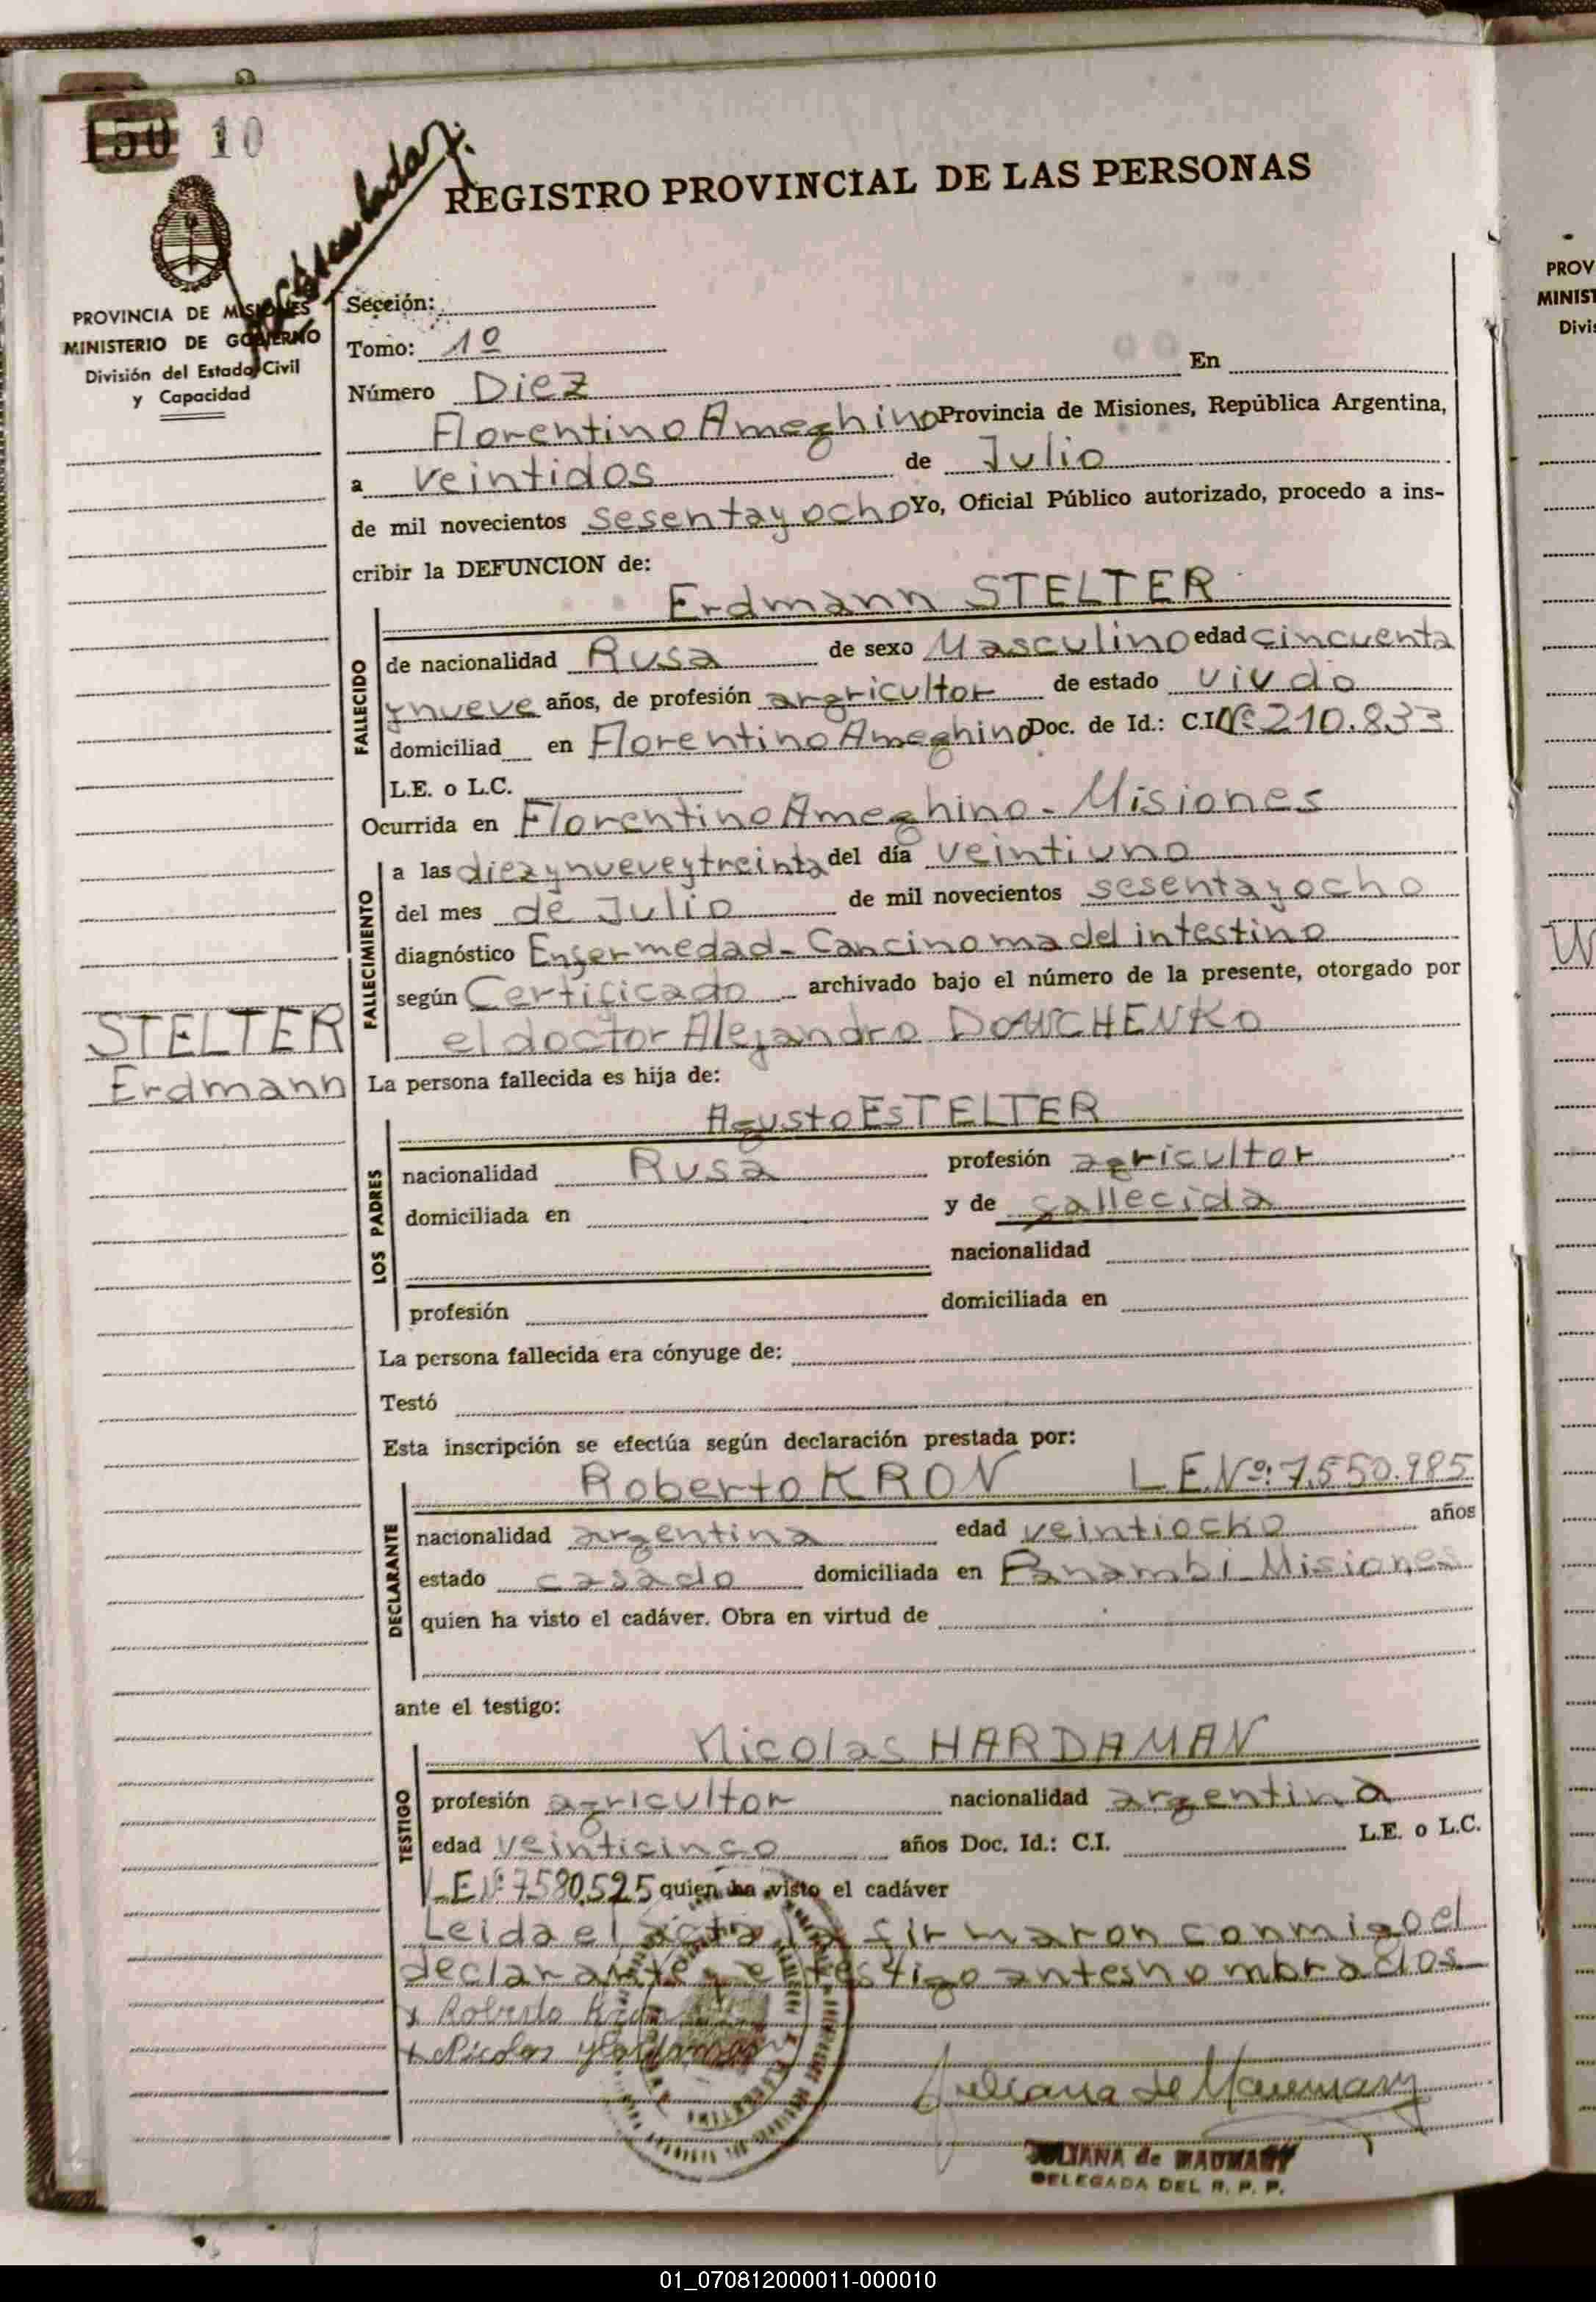 150 10
REGISTRO PROVINCIAL DE LAS PERSONAS
PROVINCIA DE MISIONES
MINISTERIO DE GOBIERNO
División del Estado Civil
y Capacidad
Sección:
Tomo: 1º
Número Diez En
Florentino Ameghino Provincia de Misiones, República Argentina,
a veintidos de Julio
de mil novecientos sesenta y ocho Yo, Oficial Público autorizado, procedo a ins-
cribir la DEFUNCION de:
Erdmann STELTER
FALLECIDO
de nacionalidad Rusa de sexo Masculino edad cincuenta
y nueve años, de profesión argricultor de estado viudo
domiciliad en Florentino Ameghino Doc. de Id.: C.I. Nº 210.833
L.E. o L.C.
Ocurrida en Florentino Ameghino - Misiones
FALLECIMIENTO
a las diez y nueve y treinta del día veintiuno
del mes de Julio de mil novecientos sesenta y ocho
diagnóstico Enfermedad - Cancinoma del intestino
según Certificado archivado bajo el número de la presente, otorgado por
el doctor Alejandro DOWCHENKO
STELTER
Erdmann
La persona fallecida es hija de:
Agusto EsTELTER
LOS PADRES
nacionalidad Rusa profesión agricultor
domiciliada en y de fallecida
nacionalidad
profesión domiciliada en
La persona fallecida era cónyuge de:
Testó
Esta inscripción se efectúa según declaración prestada por:
Roberto KRON L.E.Nº: 7.550.985
DECLARANTE
nacionalidad argentina edad veintiocho años
estado casado domiciliada en Panambi - Misiones
quien ha visto el cadáver. Obra en virtud de
ante el testigo:
Nicolas HARDAMAN
TESTIGO
profesión agricultor nacionalidad argentina
edad veinticinco años Doc. Id.: C.I. L.E. o L.C.
L.E.Nº 7580.525 quien ha visto el cadáver
Leida el acta la firmaron conmigo el
declarante y el testigo antes nombrados
x Roberto Kron
x Nicolas Hardaman
Juliana de Maumary
JULIANA de MAUMARY
DELEGADA DEL R. P. P.
PROV
MINIST
Divis
01_070812000011-000010